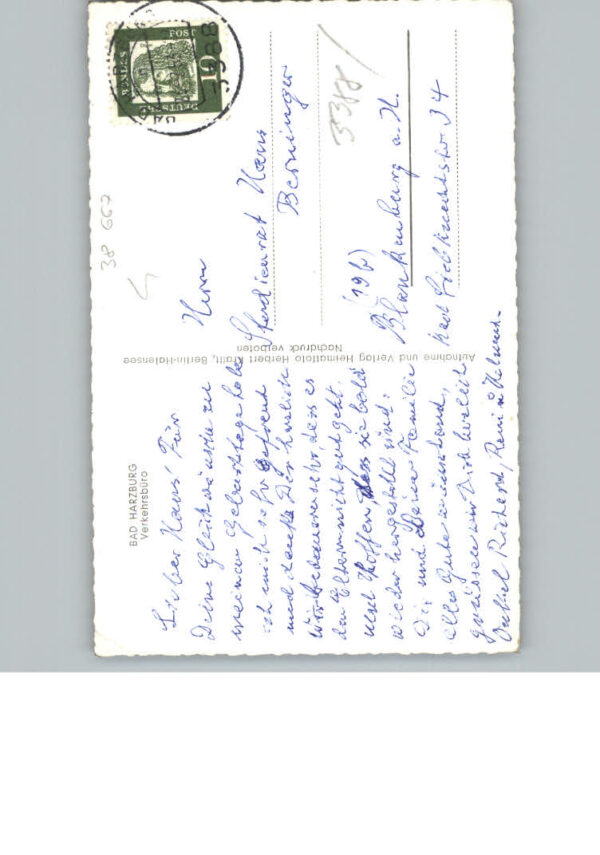 BAD HARZBURG
Verkehrsbüro
Lieber Hans! Für
Deine Glückwünsche zu
meinem Geburtstag habe
ich mich sehr gefreut
und danke Dir herzlich
Wir bedauern sehr dass es
den Eltern nicht gut geht.
und hoffen, dass sie bald
wieder hergestellt sind.
Dir und Deiner Familie
alles Gute wünschend,
grüssen wir Dich herzlich
Onkel Richard, Reni u
Aufnahme und Verlag Heimatfoto Herbert Krafft, Berlin-Halensee
Nachdruck verboten
Herrn
Hans
Berninger
(19b)
Blankenburg a. H.
Karl Liebknechtstr. 34
38 667
3388/
DEUTSCHE
POST
10